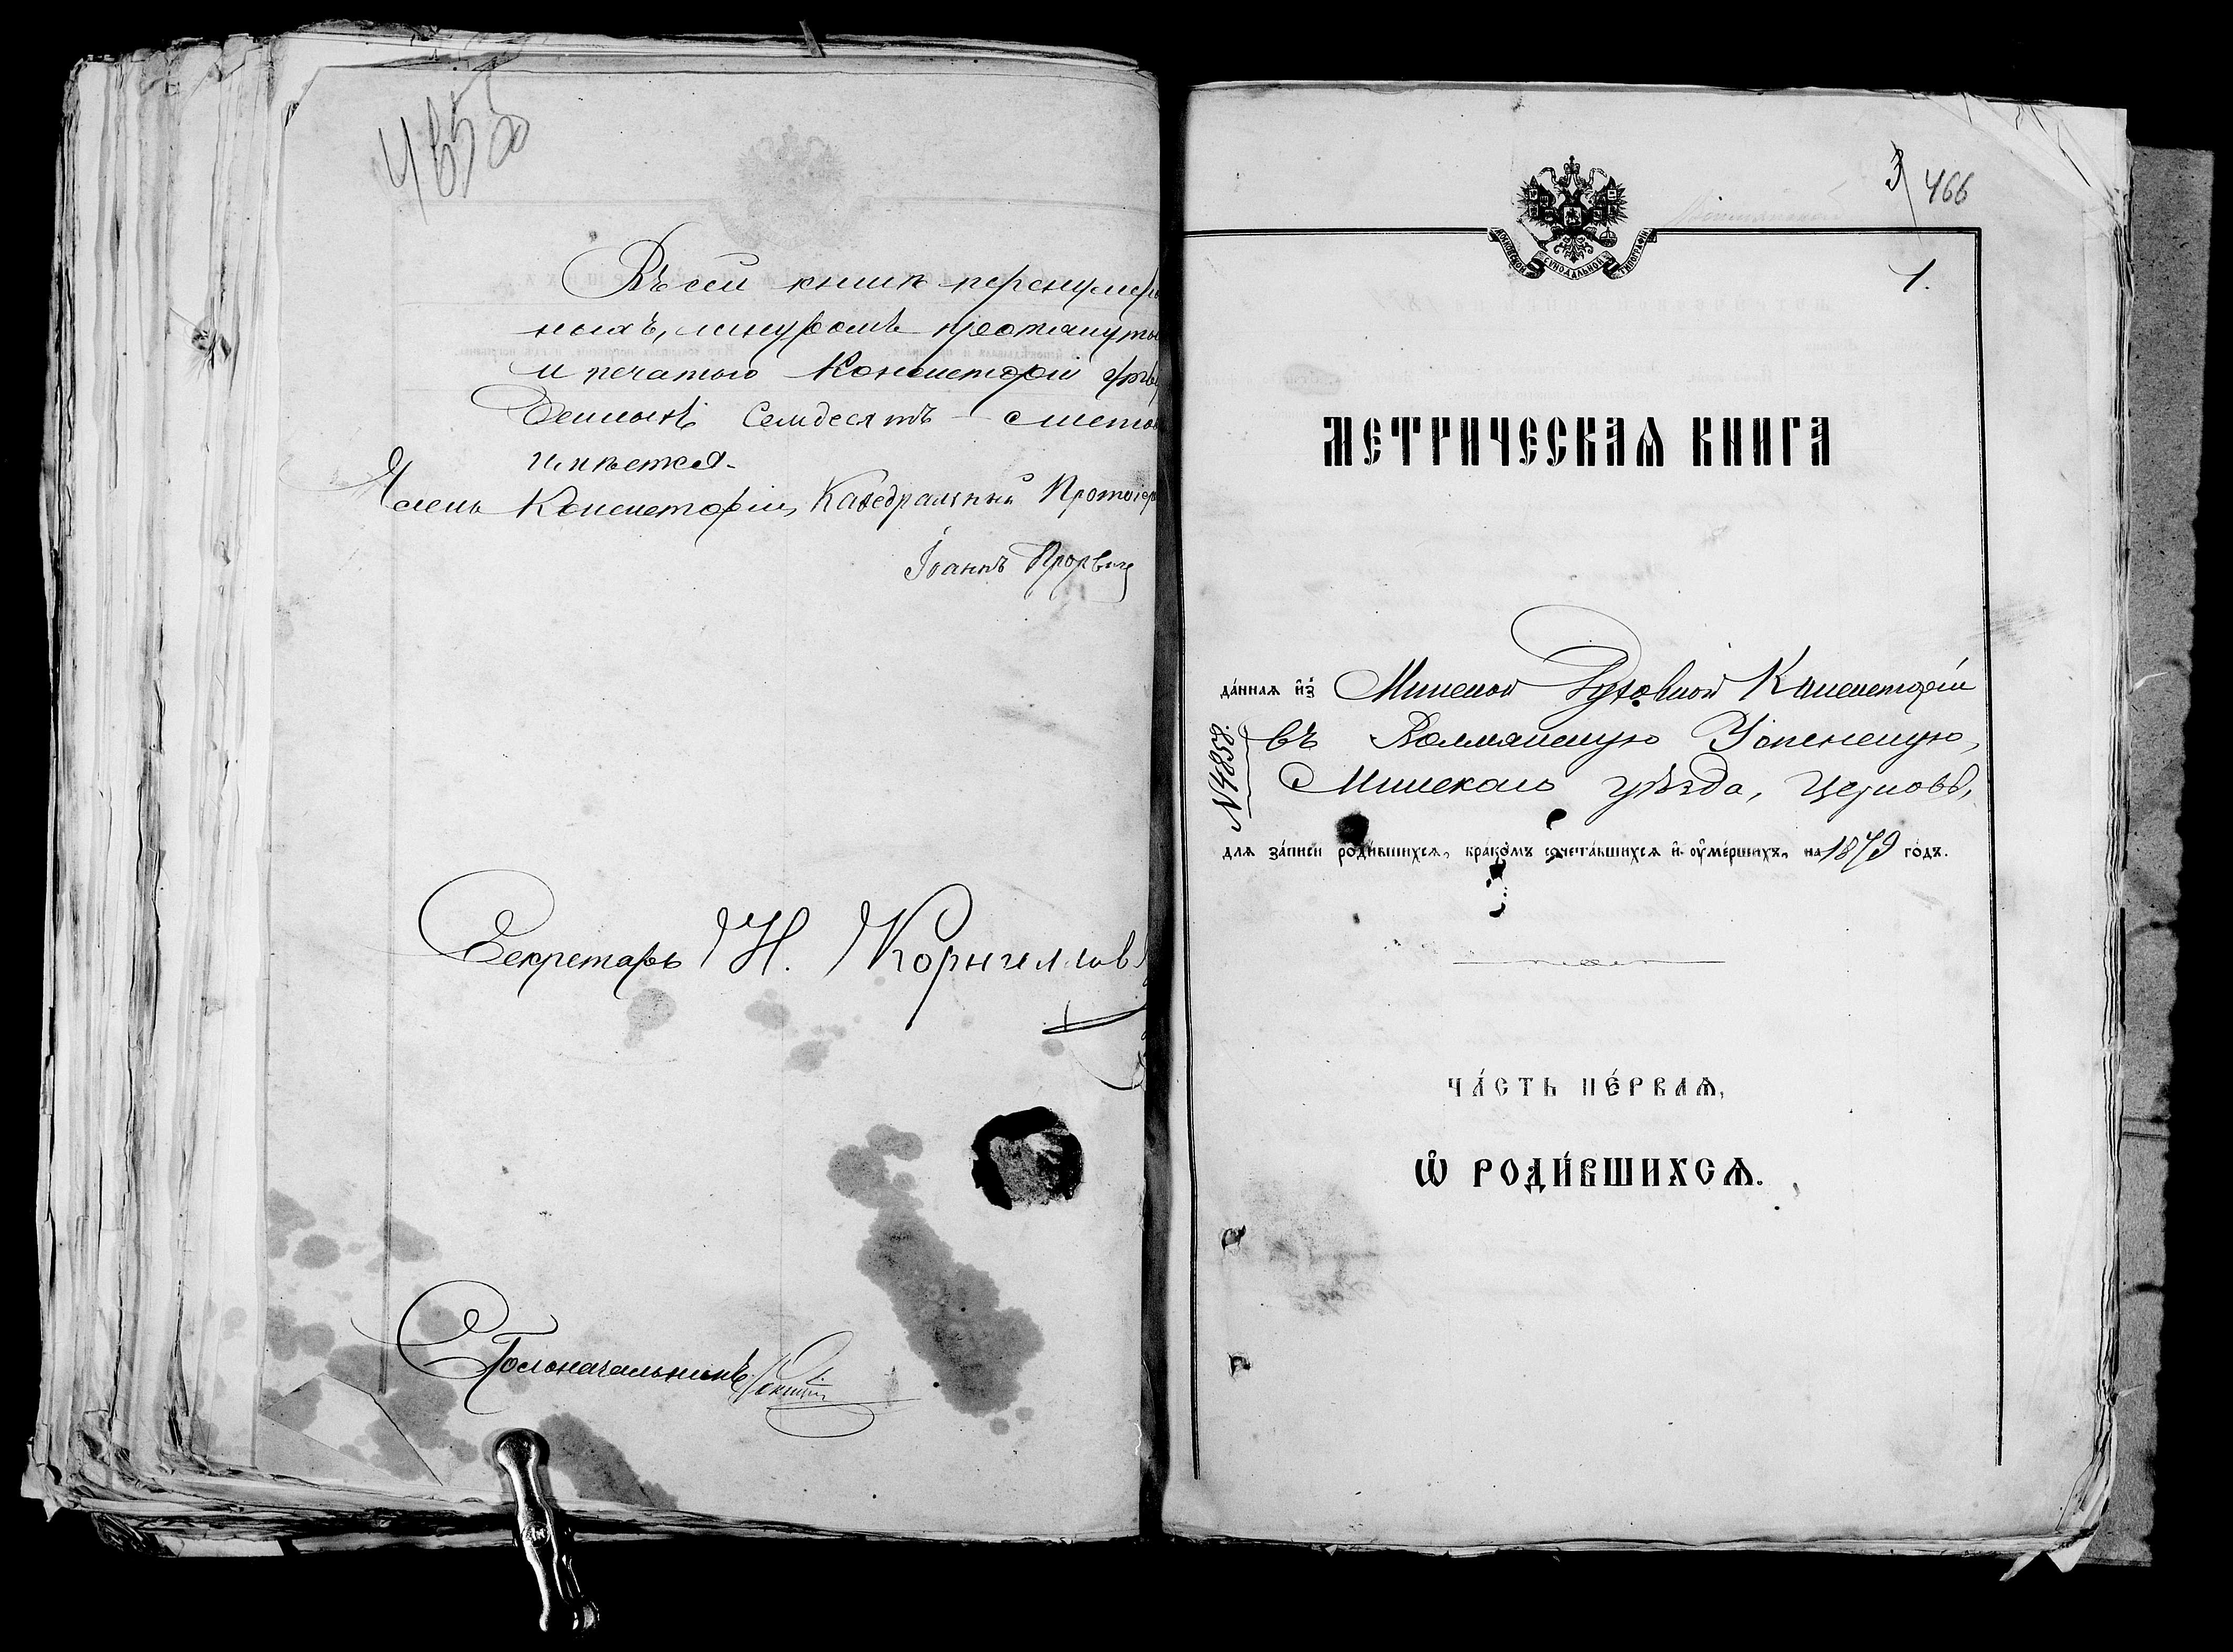 465 об
Въ сей книгѣ перенумеро
ныхъ, шнуромъ протянуты
и печатью Консисторіи утвер
жденныхъ Семдесятъ листов
имѣется.
Членъ Консисторіи, Каѳедральный Протоіер
Іоаннъ Прорвич
Секретарь Н. Корнилов
Столоначальникъ
3 466
МОСКОВСКОЙ СУНОДАЛЬНОЙ ТИПОГРАФІИ
1.
МЕТРИЧЕСКАѦ КНИГА
да́ннаѧ и҆з̾ Минской Духовной Консисторіи
въ Волмянскую Успенскую,
Минскаго уѣзда, Церковь,
№ 4858.
для за́писи роди́вшихся, бра́комъ сочета́вшихся и҆ оу҆ме́ршихъ, на 1879 го́дъ.
ЧА́СТЬ ПЕ́РВАѦ,
Ѡ҆ РОДИ́ВШИХСѦ.